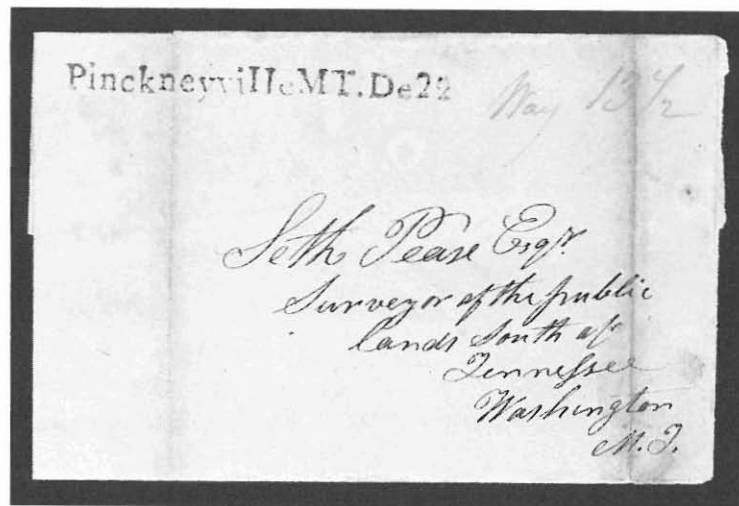 PinckneyvilleMT.De22
Way 13½
Seth Pease Esqr.
Surveyor of the public
lands south of
Tennessee
Washington
M.T.